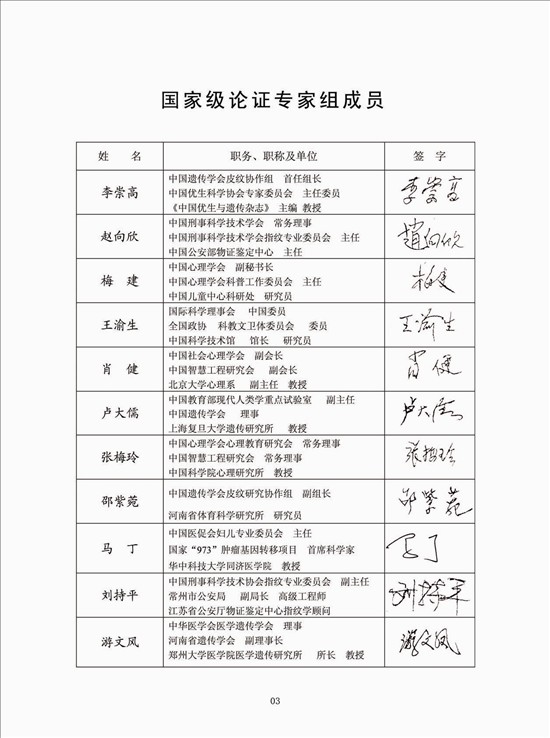 国家级论证专家组成员
姓 名 职务、职称及单位 签 字
李崇高 中国遗传学会皮纹协作组 首任组长 李崇高
中国优生科学协会专家委员会 主任委员
《中国优生与遗传杂志》 主编 教授
赵向欣 中国刑事科学技术学会 常务理事 趙向欣
中国刑事科学技术学会指纹专业委员会 主任
中国公安部物证鉴定中心 主任
梅 建 中国心理学会 副秘书长 梅建
中国心理学会科普工作委员会 主任
中国儿童中心科研处 研究员
王渝生 国际科学理事会 中国委员 王渝生
全国政协 科教文卫体委员会 委员
中国科学技术馆 馆长 研究员
肖 健 中国社会心理学会 副会长 肖健
中国智慧工程研究会 副会长
北京大学心理系 副主任 教授
卢大儒 中国教育部现代人类学重点试验室 副主任 卢大儒
中国遗传学会 理事
上海复旦大学遗传研究所 教授
张梅玲 中国心理学会心理教育研究会 常务理事 张梅玲
中国智慧工程研究会 常务理事
中国科学院心理研究所 教授
邵紫菀 中国遗传学会皮纹研究协作组 副组长 邵紫菀
河南省体育科学研究所 研究员
马 丁 中国医促会妇儿专业委员会 主任 马丁
国家“973”肿瘤基因转移项目 首席科学家
华中科技大学同济医学院 教授
刘持平 中国刑事科学技术协会指纹专业委员会 副主任 刘持平
常州市公安局 副局长 高级工程师
江苏省公安厅物证鉴定中心指纹学顾问
游文凤 中华医学会医学遗传学会 理事 游文凤
河南省遗传学会 副理事长
郑州大学医学院医学遗传研究所 所长 教授
03